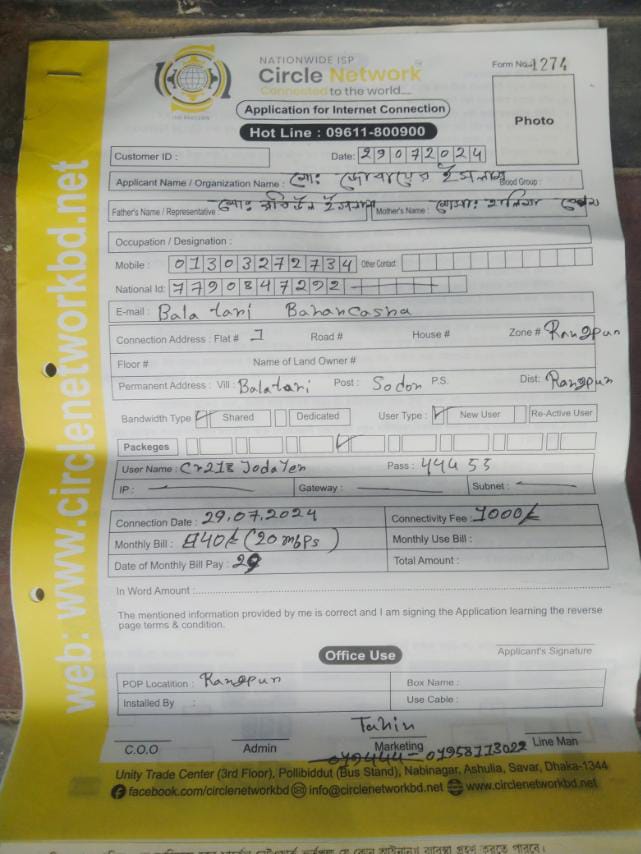 NATIONWIDE ISP
Circle Network
Connected to the world....
Form No. 1274
Application for Internet Connection
Hot Line : 09611-800900
Photo
Customer ID :
Date: 29072024
Applicant Name / Organization Name : মোঃ জোবায়ের ইসলাম Blood Group :
Father's Name / Representative মোঃ রবিউল ইসলাম Mother's Name : মোছাঃ
Occupation / Designation :
Mobile : 01303272734 Other Contact
National Id: 7790847292
E-mail : Bala tari
Connection Address : Flat # 1 Road # House # Zone # Rangpur
Floor # Name of Land Owner #
Permanent Address : Vill : Balatari Post : Sodor P.S. Dist: Rangpur
Bandwidth Type Shared Dedicated User Type : New User Re-Active User
Packeges
User Name : Pass : 44455
IP : Gateway : Subnet :
Connection Date : 29.07.2024 Connectivity Fee : 1000/=
Monthly Bill : 840/= (20 mbps) Monthly Use Bill :
Date of Monthly Bill Pay : 29 Total Amount :
In Word Amount :
The mentioned information provided by me is correct and I am signing the Application learning the reverse
page terms & condition.
Applicant's Signature
Office Use
POP Locatition : Rangpur Box Name :
Installed By : Use Cable :
Tuhin
C.O.O Admin Marketing Line Man
01958113022
Unity Trade Center (3rd Floor), Pollibiddut (Bus Stand), Nabinagar, Ashulia, Savar, Dhaka-1344
facebook.com/circlenetworkbd info@circlenetworkbd.net www.circlenetworkbd.net
web: www.circlenetworkbd.net